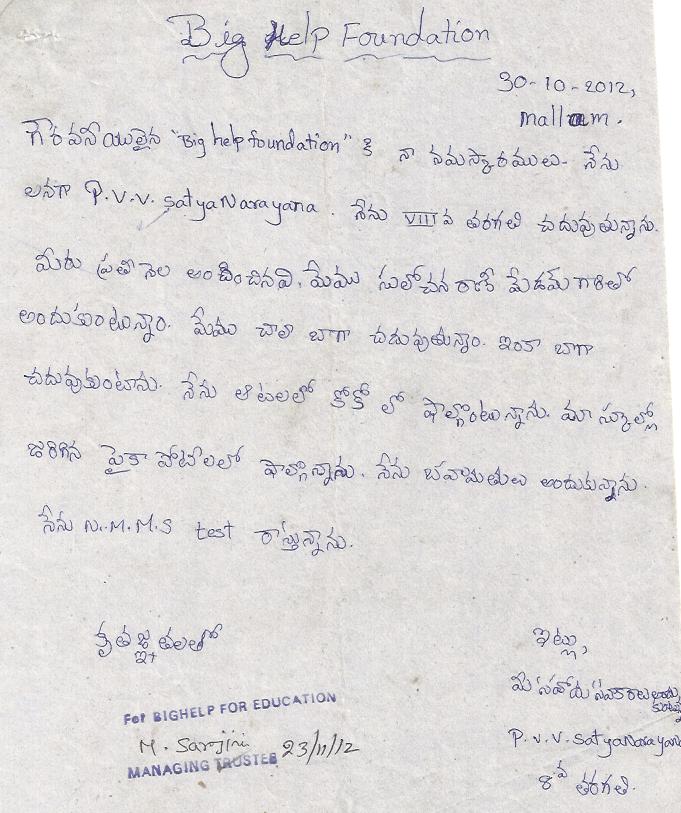 Big Help Foundation
30-10-2012,
mallam.
గౌరవనీయులైన "Big help foundation" కి నా నమస్కారములు- నేను
అనగా P.V.V. satyaNarayana. నేను VIII వ తరగతి చదువుతున్నాను.
మీరు ప్రతి నెల అందించినవి, మేము సులోచన రాణి మేడమ్ గారిలో
అందుకుంటున్నాం. మేము చాలా బాగా చదువుతున్నాం. ఇంకా బాగా
చదువుకుంటాను. నేను ఆటలలో కోకో లో పాల్గొంటున్నాను. మా స్కూల్లో
జరిగిన పైకా పోటీలలో పాల్గొన్నాను. నేను బహుమతులు అందుకున్నాను.
నేను N.M.M.S test రాస్తున్నాను.
కృతజ్ఞతలతో
ఇట్లు,
మీ సహాయ సహకారాలు అందు
P.V.V.satyaNarayana
8వ తరగతి.
For BIGHELP FOR EDUCATION
M. Sarojini 23/11/12
MANAGING TRUSTEE